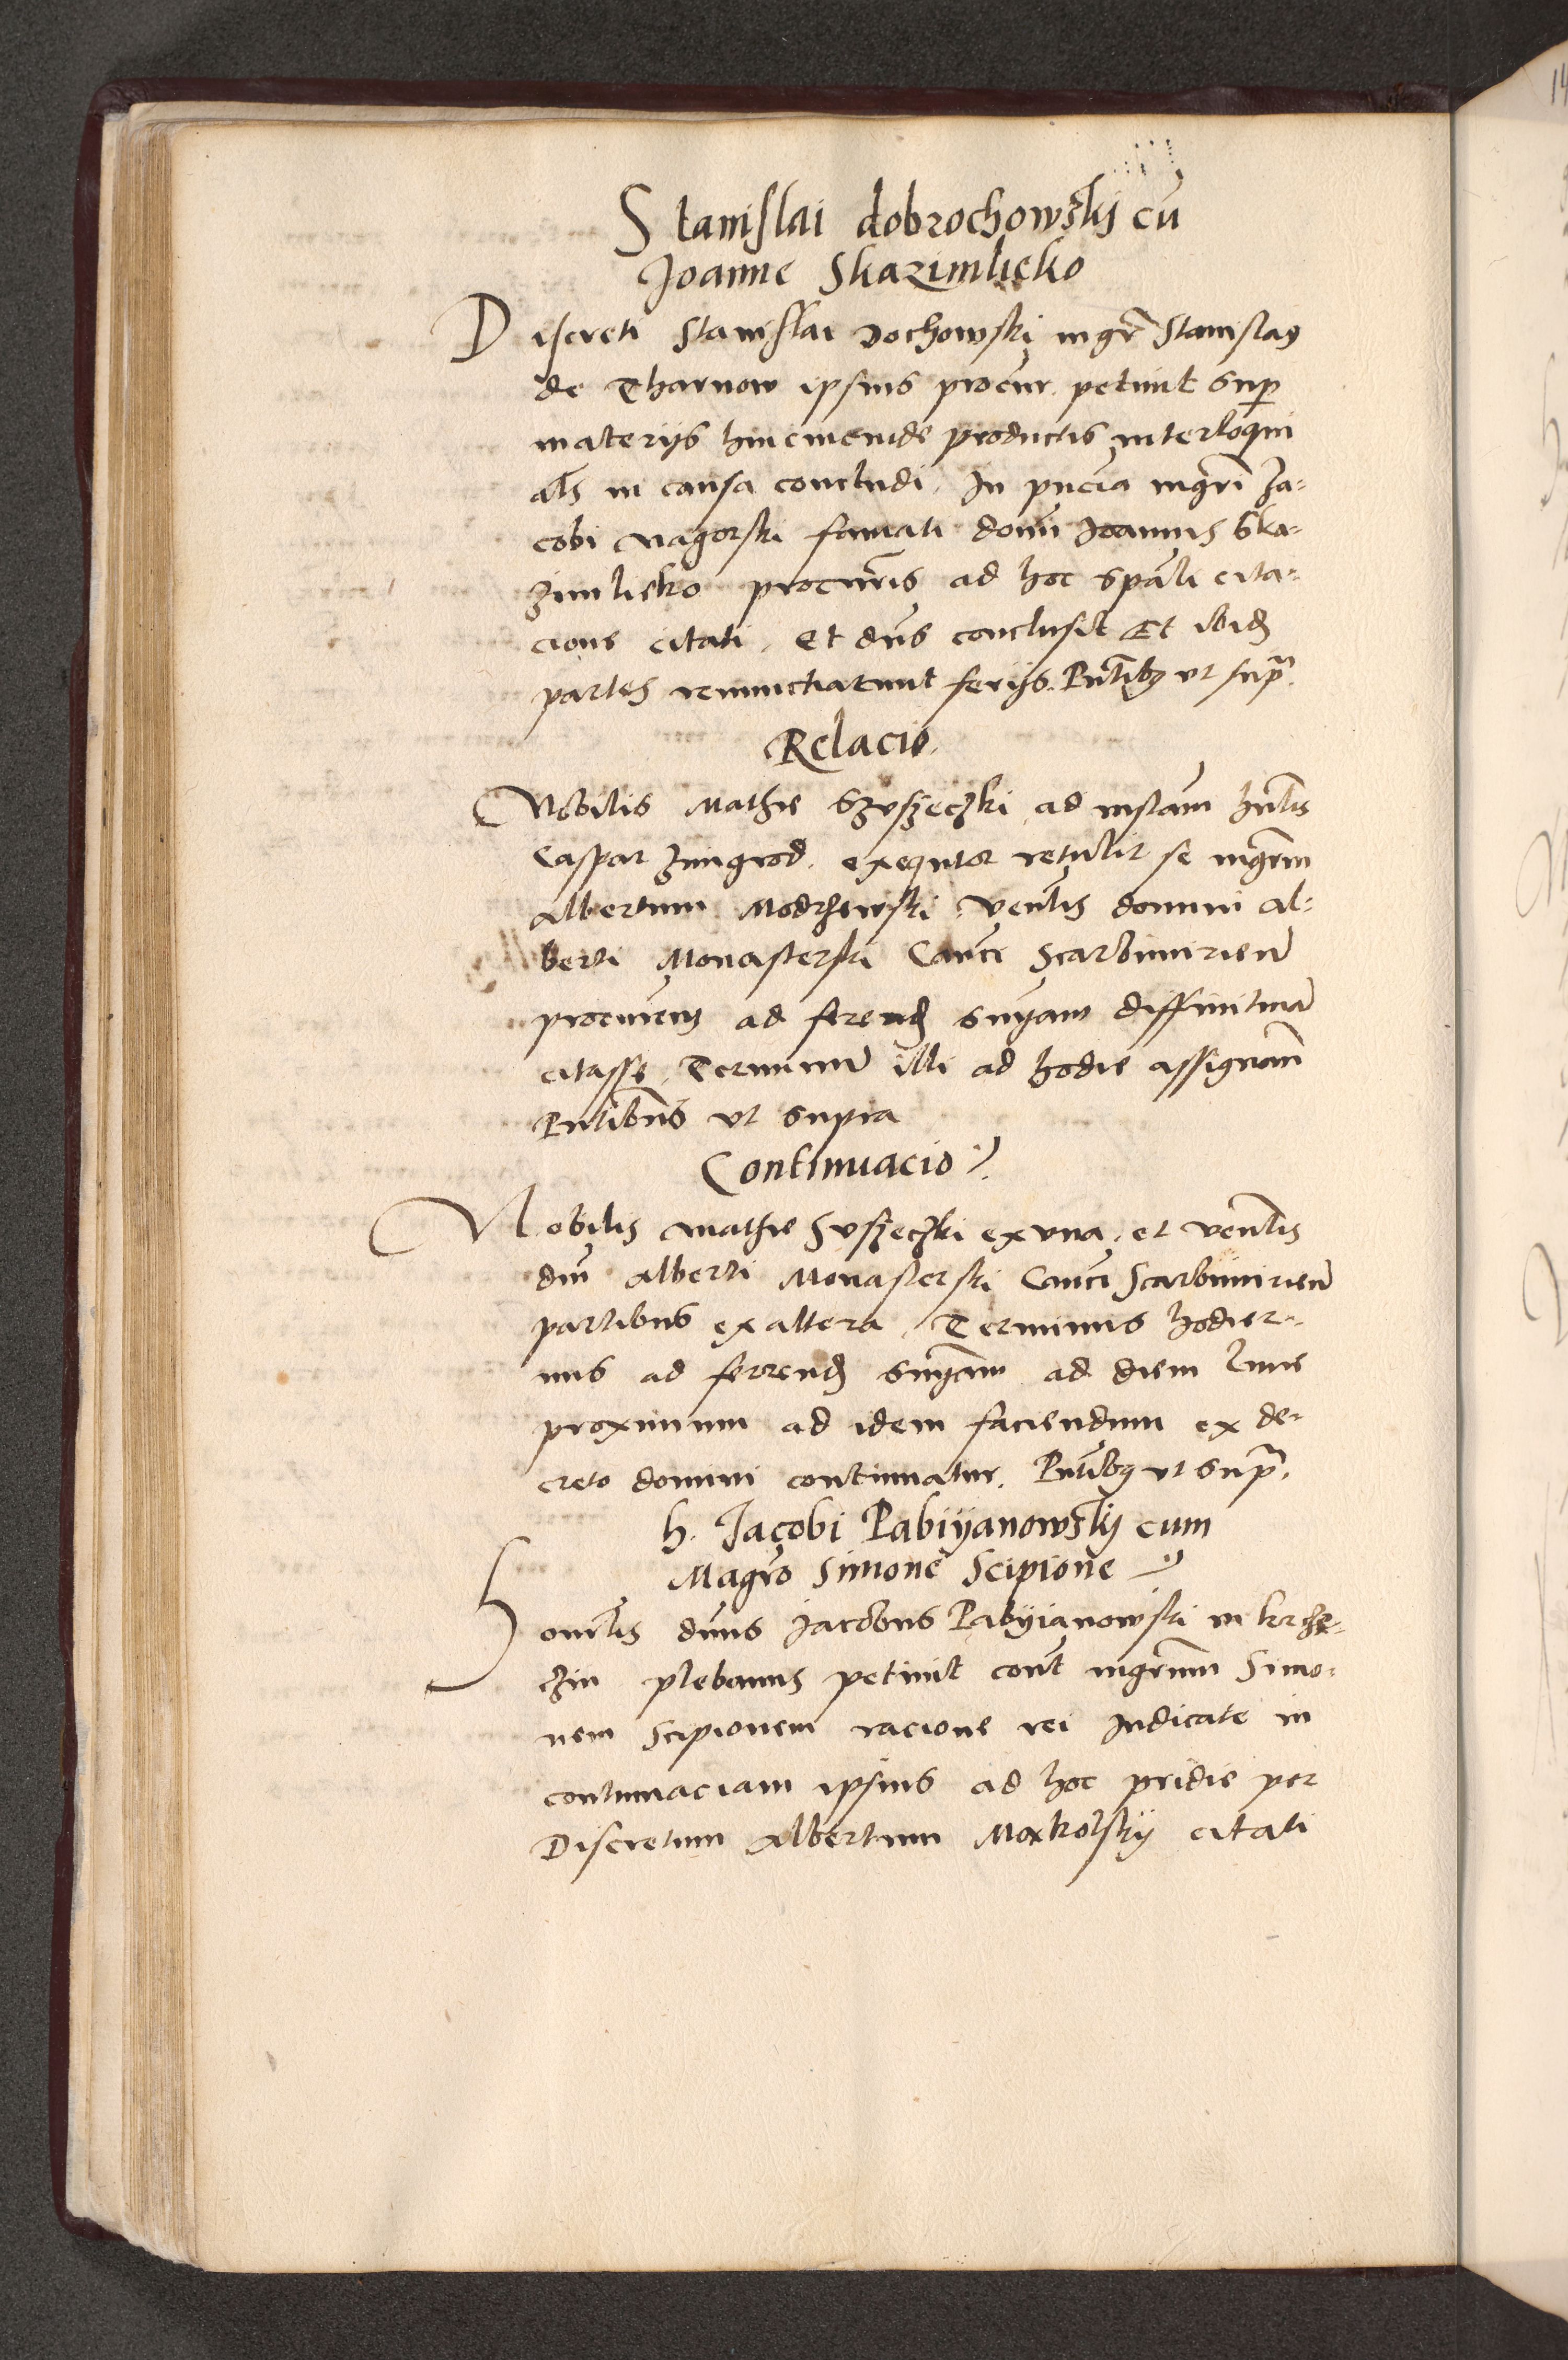 Stanislai dobrochowskÿ cū
Joanne Skazimlieko
Discreti Stanislai Dochowski mgr̄ Stanislaꝯ
de Tharnow ipsius procur. petiuit suꝑ
materijs hincinde productis interloqui
als̄ in causa concludi. In pn̄cia mgr̄i Ja-
cobi Nagorski famati domi Joannis Ska-
zimlieko procur̄is ad hoc spāli cita-
cione citati. Et dn̄s conclusit Et ibid
partes renunctiarunt ferijs. Pn̄tibꝫ vt supª.
Relacio.
Nobilis Mathie Szvszeczki ad instām hn̄tis
Caspar Jungrod. exequtor retulit se mgr̄m
Albertum Modrzewski ven̄lis domini Al-
berti Monasterski Can̄ci Scarbimirien̄
procurem̄ ad ferend sn̄iam diffinitiuā
citasse. Terminū illi ad hodie assignan̄
Pn̄tibus vt supra
Continuacio
Nobilis Mathie Svszeczki ex vna. et ven̄lis
dn̄i Alberti Monasterski Can̄ci Scarbimirien̄
partibus ex altera. Terminus hodier-
nus ad ferrend sn̄iam ad diem Lune
proximum ad idem faciendum ex de-
creto domini continuatur. Pn̄tibꝫ vt supª.
h. Jacobi Pabiÿanowskÿ cum
Magr̄o Simone Scipione
Honor̄lis dn̄us Jacobus Pabÿianowski in
plebanus petiuit cont̄ mgr̄um Simo-
nem Scipionem racione rei Judicate in
contumaciam ipsius ad hoc pridie per
Discretum Albertum Mokolskÿ citati